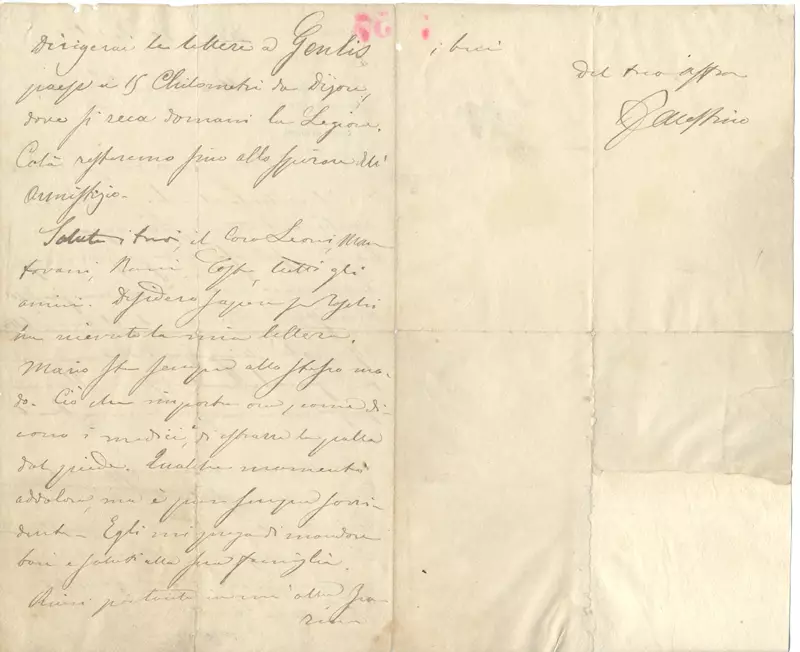 Dirigerai le lettere a Genlis
paese a 15 Chilometri da Dijon,
dove si reca domani la Legione.
Colà resteremo fino allo spirare dell'
armistizio.
Saluta i tuoi, il Caro Leoni, Man
tovani, tutti gli
amici. Desidero sapere se
ha ricevuto la mia lettera.
Mario sta sempre allo stesso mo-
do. Ciò che importa ora, come di-
cono i medici, è di estrarre la palla
dal piede. Qualche momento
addolora, ma è pur sempre sorri
dente. Egli mi prega di mandare
baci e saluti alla sua famiglia.
i baci
del tuo